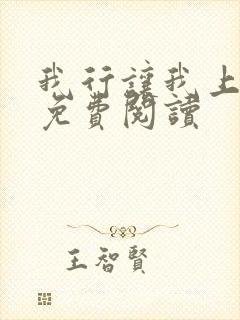 我行讓我上
免費閱讀
王智賢